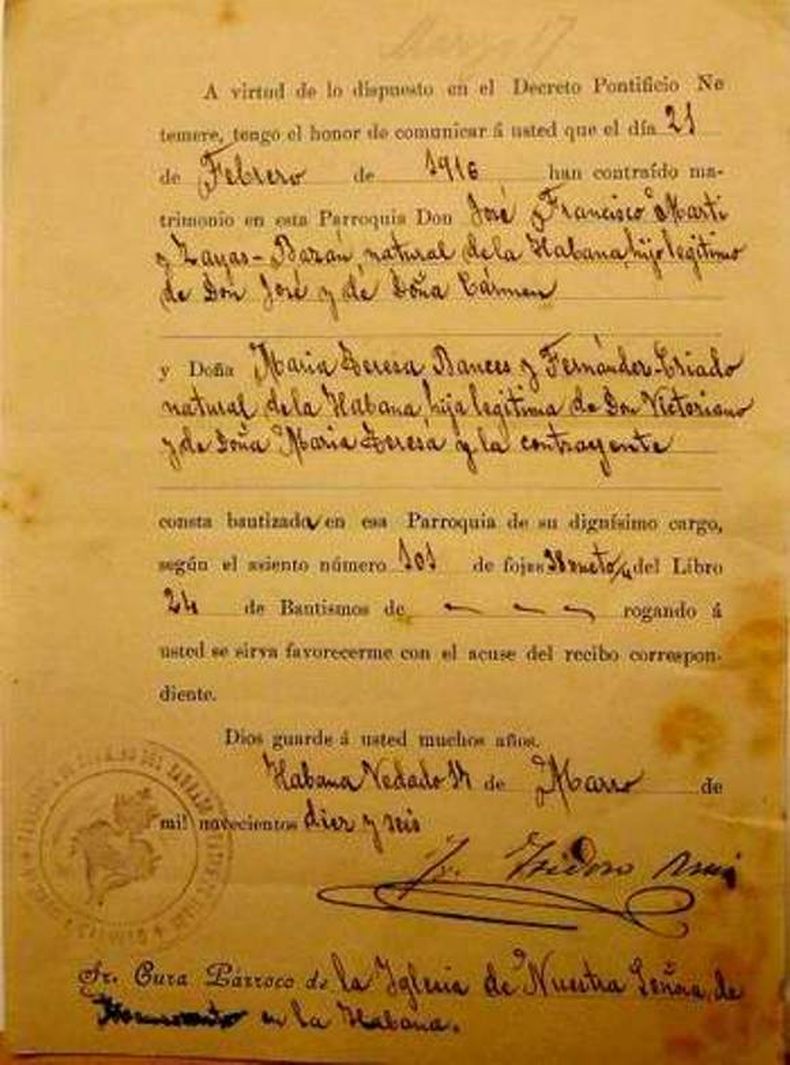 Marzo 17
A virtud de lo dispuesto en el Decreto Pontificio Ne
temere, tengo el honor de comunicar á usted que el día 21
de Febrero de 1916 han contraído ma-
trimonio en esta Parroquia Don José Francisco Marti
y Zayas-Bazán, natural de la Habana, hijo legitimo
de Don José y de Doña Cármen
y Doña Maria Teresa Bances y Fernández-Criado
natural de la Habana, hija legitima de Don Victoriano
y de Doña Maria Teresa y la contrayente
consta bautizada en esa Parroquia de su dignísimo cargo,
según el asiento número 101 de fojas del Libro
24 de Bautismos de — — — rogando á
usted se sirva favorecerme con el acuse del recibo correspon-
diente.
Dios guarde á usted muchos años.
Habana Vedado de Marzo de
mil novecientos diez y seis
Fr. Isidoro Ruiz
Sr. Cura Párroco de la Iglesia de Nuestra Señora de
en la Habana.